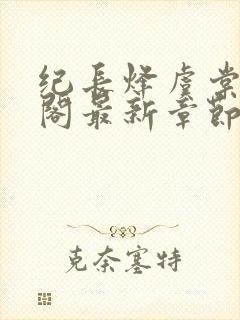 纪长烽虞棠
阁最新章节
克奈塞特